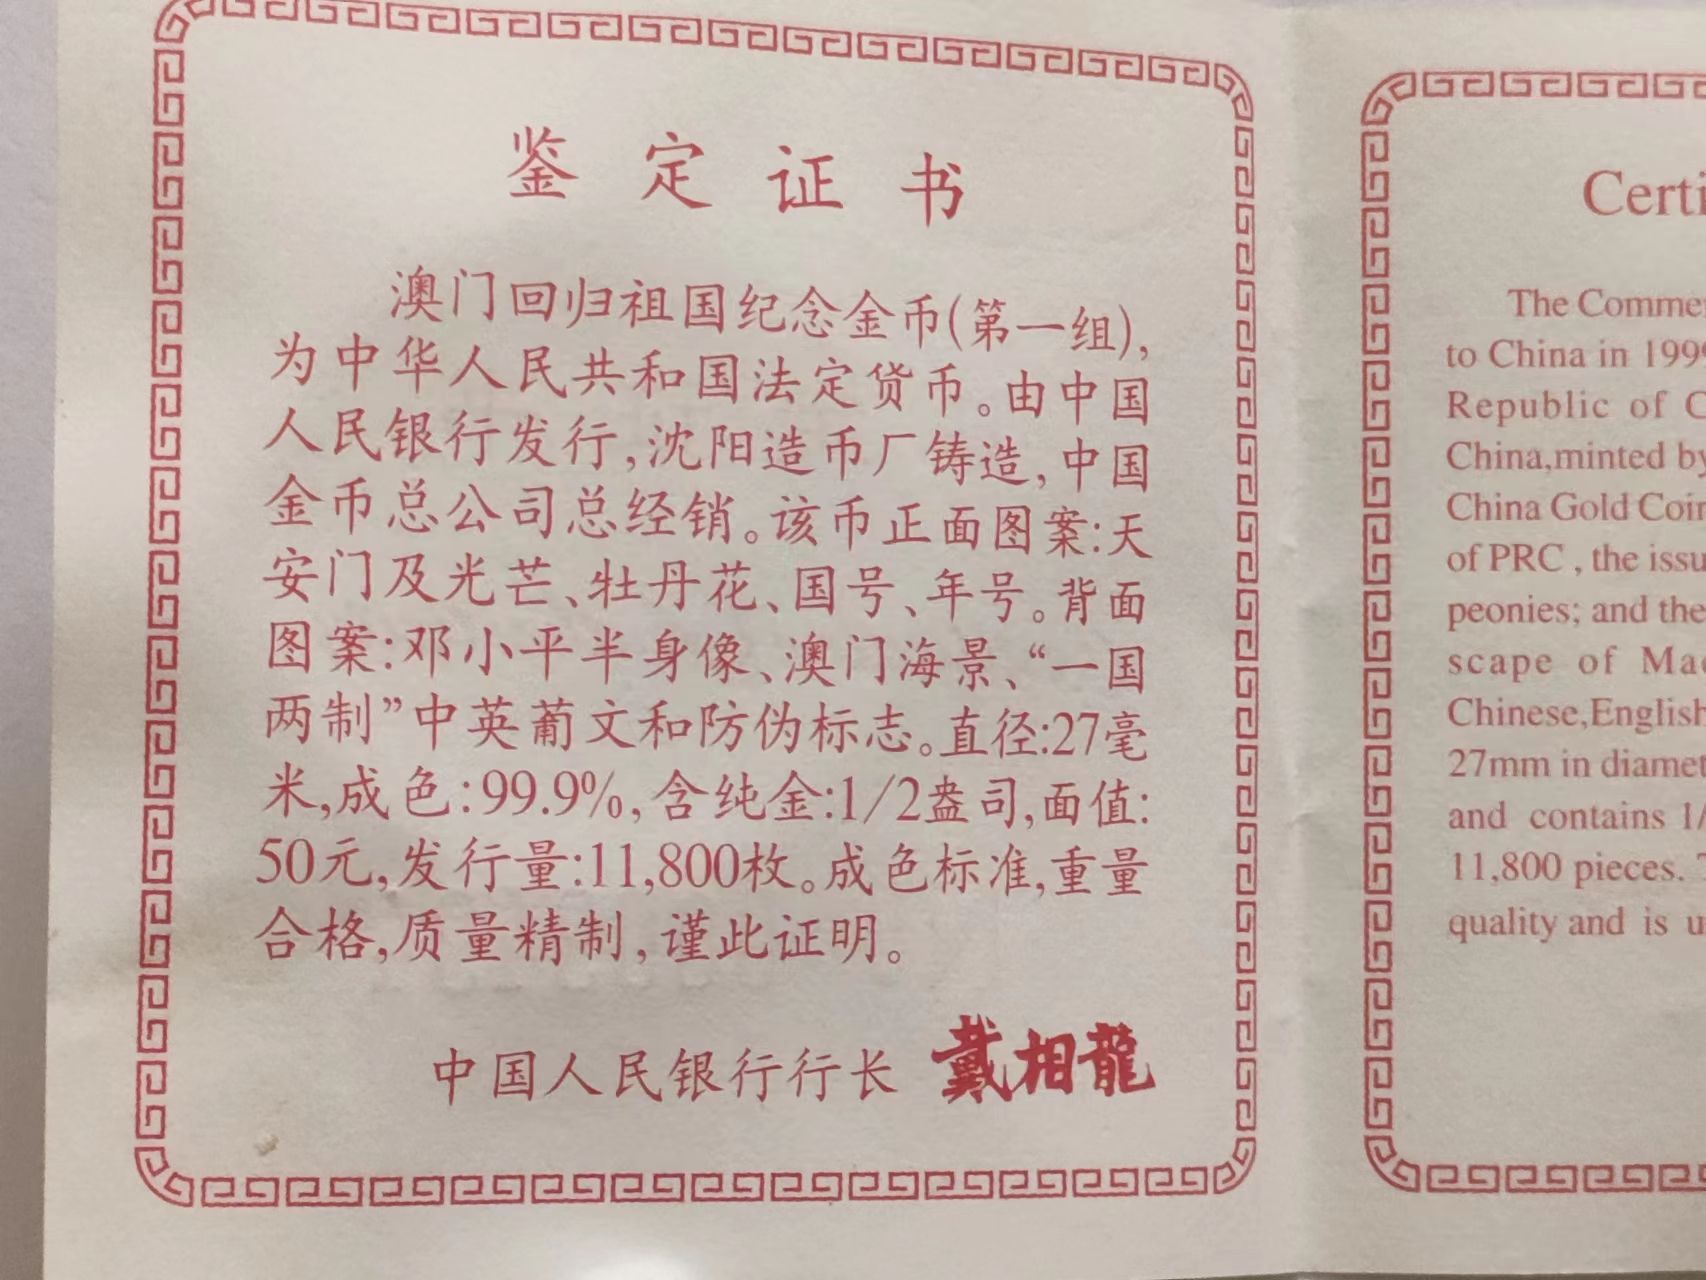 鉴定证书
澳门回归祖国纪念金币(第一组),
为中华人民共和国法定货币。由中国
人民银行发行,沈阳造币厂铸造,中国
金币总公司总经销。该币正面图案:天
安门及光芒、牡丹花、国号、年号。背面
图案:邓小平半身像、澳门海景、“一国
两制”中英葡文和防伪标志。直径:27毫
米,成色:99.9%,含纯金:1/2盎司,面值:
50元,发行量:11,800枚。成色标准,重量
合格,质量精制,谨此证明。
中国人民银行行长 戴相龍
Certi
The Comme
to China in 199
Republic of C
China,minted by
China Gold Coin
of PRC , the issu
peonies; and the
scape of Mac
Chinese,English
27mm in diamet
and contains 1/
11,800 pieces. T
quality and is u